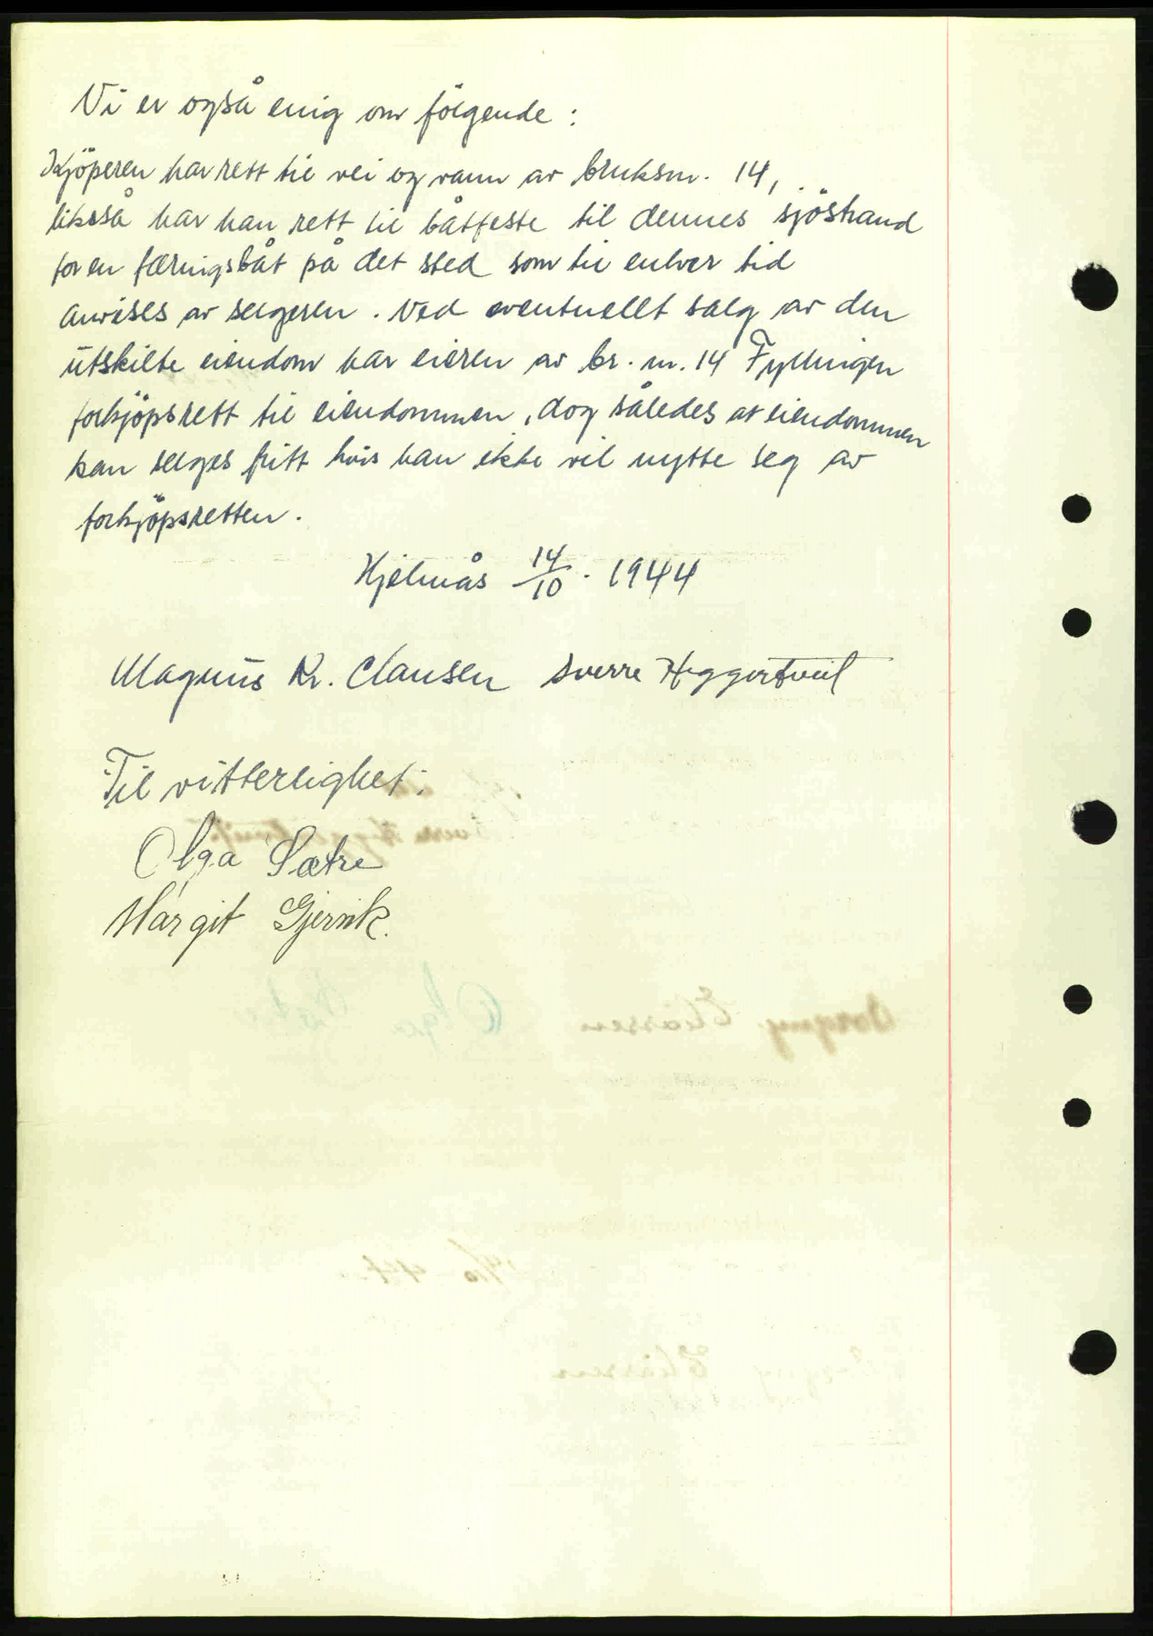 Vi er også enig om følgende :
Kjöperen har rett til vei og vann av bruksnr. 14,
likeså har han rett til båtfeste til dennes sjöstrand
for en færingsbåt på det sted som til enhver tid
anvises av selgeren. Ved eventuellt salg av den
utskilte eiendom har eieren av br. nr. 14 Fyllingen
forkjöpsrett til eiendommen, dog således at eiendommen
kan selges fritt hvis han ikke vil nytte seg av
forkjöpsretten.
Hjelmås 14/10. 1944
Magnus Kr. Clausen Sverre Heggertveit
Til vitterlighet:
Olga Sætre
Margit Gjervik.